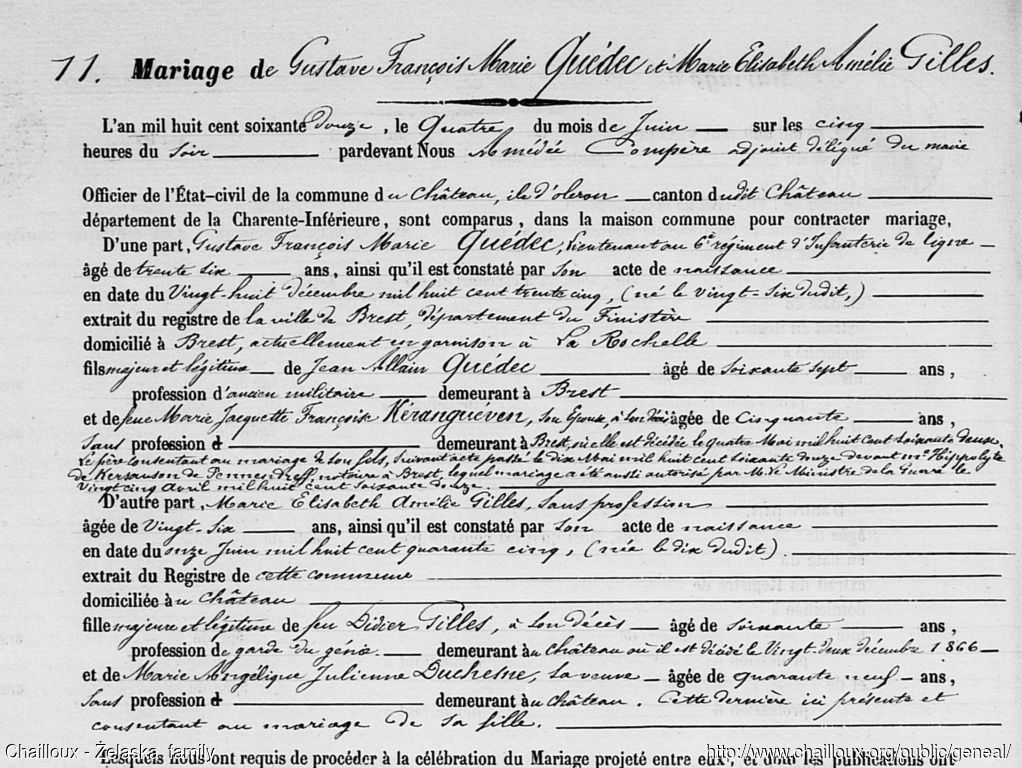 11. Mariage de Gustave François Marie Quédec et Marie Elisabeth Amélie Gilles.
L'an mil huit cent soixante douze, le Quatre du mois de Juin sur les cinq
heures du soir pardevant Nous Amédée Compère adjoint délégué du maire
Officier de l'État-civil de la commune du Château, ile d'oleron canton dudit Château
département de la Charente-Inférieure, sont comparus, dans la maison commune pour contracter mariage,
D'une part, Gustave François Marie Quédec, Lieutenant au 6e régiment d'Infanterie de ligne
âgé de trente six ans, ainsi qu'il est constaté par son acte de naissance
en date du Vingt-huit décembre mil huit cent trente cinq, (né le vingt-six dudit,)
extrait du registre de la ville de Brest, département du Finistère
domicilié à Brest, actuellement en garnison à La Rochelle
fils majeur et légitime de Jean Allain Quédec âgé de soixante sept ans,
profession d'ancien militaire demeurant à Brest
et de feue Marie Jacquette Françoise Kéranguéven, son Epouse, à son décès âgée de Cinquante ans,
sans profession demeurant à Brest, où elle est décédée le quatre Mai mil huit Cent soixante deux,
Le père consentant au mariage de son fils, suivant acte passé le dix Mai mil huit cent soixante douze devant me Hippolyte
de Kersauson de Pennendreff, notaire à Brest, lequel mariage a été aussi autorisé par M. le Ministre de la Guerre le
Vingt cinq avril mil huit cent soixante douze.
D'autre part, Marie Elisabeth Amélie Gilles, sans profession
âgée de Vingt-six ans, ainsi qu'il est constaté par son acte de naissance
en date du onze Juin mil huit cent quarante cinq, (née le dix dudit).
extrait du Registre de cette commune
domiciliée au Château
fille majeure et légitime de feu Didier Gilles, à son décès âgé de soixante ans,
profession de garde du génie. demeurant au Château où il est décédé le Vingt deux décembre 1866
et de Marie Angélique Julienne Duchesne, sa veuve âgée de quarante neuf ans,
sans profession demeurant au Château. Cette dernière ici présente et
consentant au mariage de sa fille.
Lesquels nous ont requis de procéder à la célébration du Mariage projeté entre eux, et dont les publications ont
Chailloux - Żelaska family
http://www.chailloux.org/public/geneal/